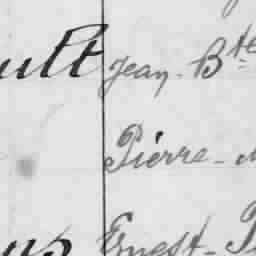 ult Jean-Bte
Pierre-
Ernest-